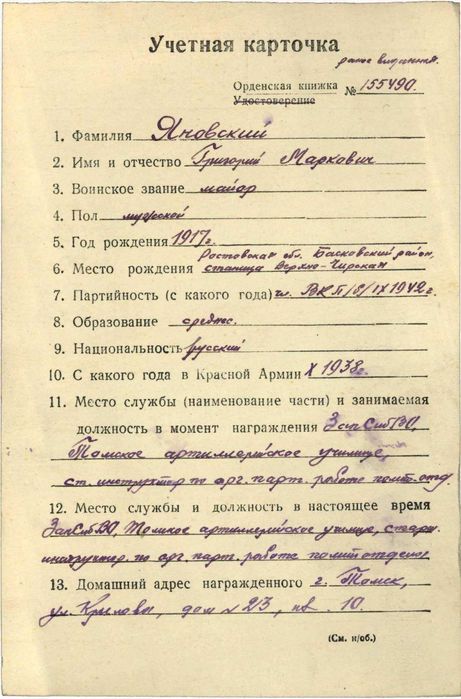 Учетная карточка
ранее выданная.
Орденская книжка
Удостоверение № 155490.
1. Фамилия Яновский
2. Имя и отчество Григорий Маркович
3. Воинское звание майор
4. Пол мужской
5. Год рождения 1917г.
Ростовская обл. район,
6. Место рождения станица Верхне-Чирская
7. Партийность (с какого года) чл. ВКП/б/ IX 1942 г.
8. Образование средн.
9. Национальность русский
10. С какого года в Красной Армии X 1938г.
11. Место службы (наименование части) и занимаемая
должность в момент награждения ЗапСибВО,
Томское артиллерийское училище,
ст. инструктор по орг. парт. работе полит.отд.
12. Место службы и должность в настоящее время
ЗапСибВО, Томское артиллерийское училище, старш.
инструктор по орг. парт. работе политотдела
13. Домашний адрес награжденного г. Томск,
ул. Крылова, дом № 23, кв. 10.
(См. н/об.)